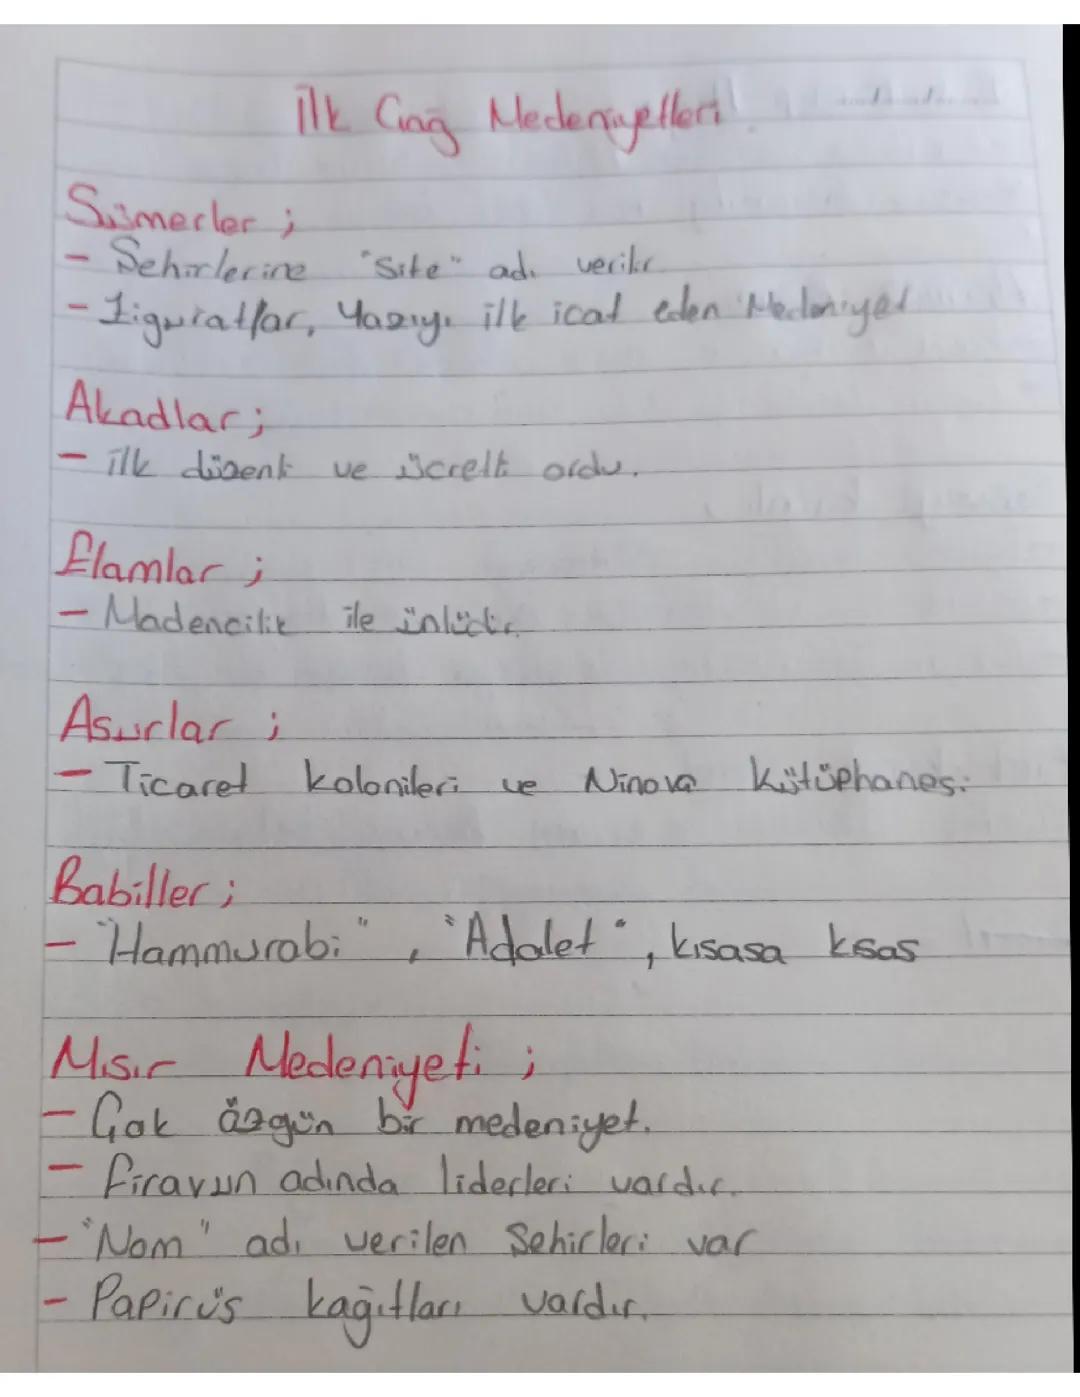 İlk Çağ Medeniyetleri
Sümerler ;
- Şehirlerine "Site" adı verilir
- Ziguratlar, Yazıyı ilk icat eden Medeniyet
Akadlar ;
- ilk düzenli ve ücretli ordu.
Elamlar ;
- Madencilik ile ünlüdür.
Asurlar ;
- Ticaret kolonileri ve Ninova kütüphanesi
Babiller ;
- "Hammurabi" , "Adalet" , kısasa kısas
Mısır Medeniyeti ;
- Çok özgün bir medeniyet.
- firavun adında liderleri vardır.
- "Nom" adı verilen Şehirleri var
- Papirüs kağıtları vardır.